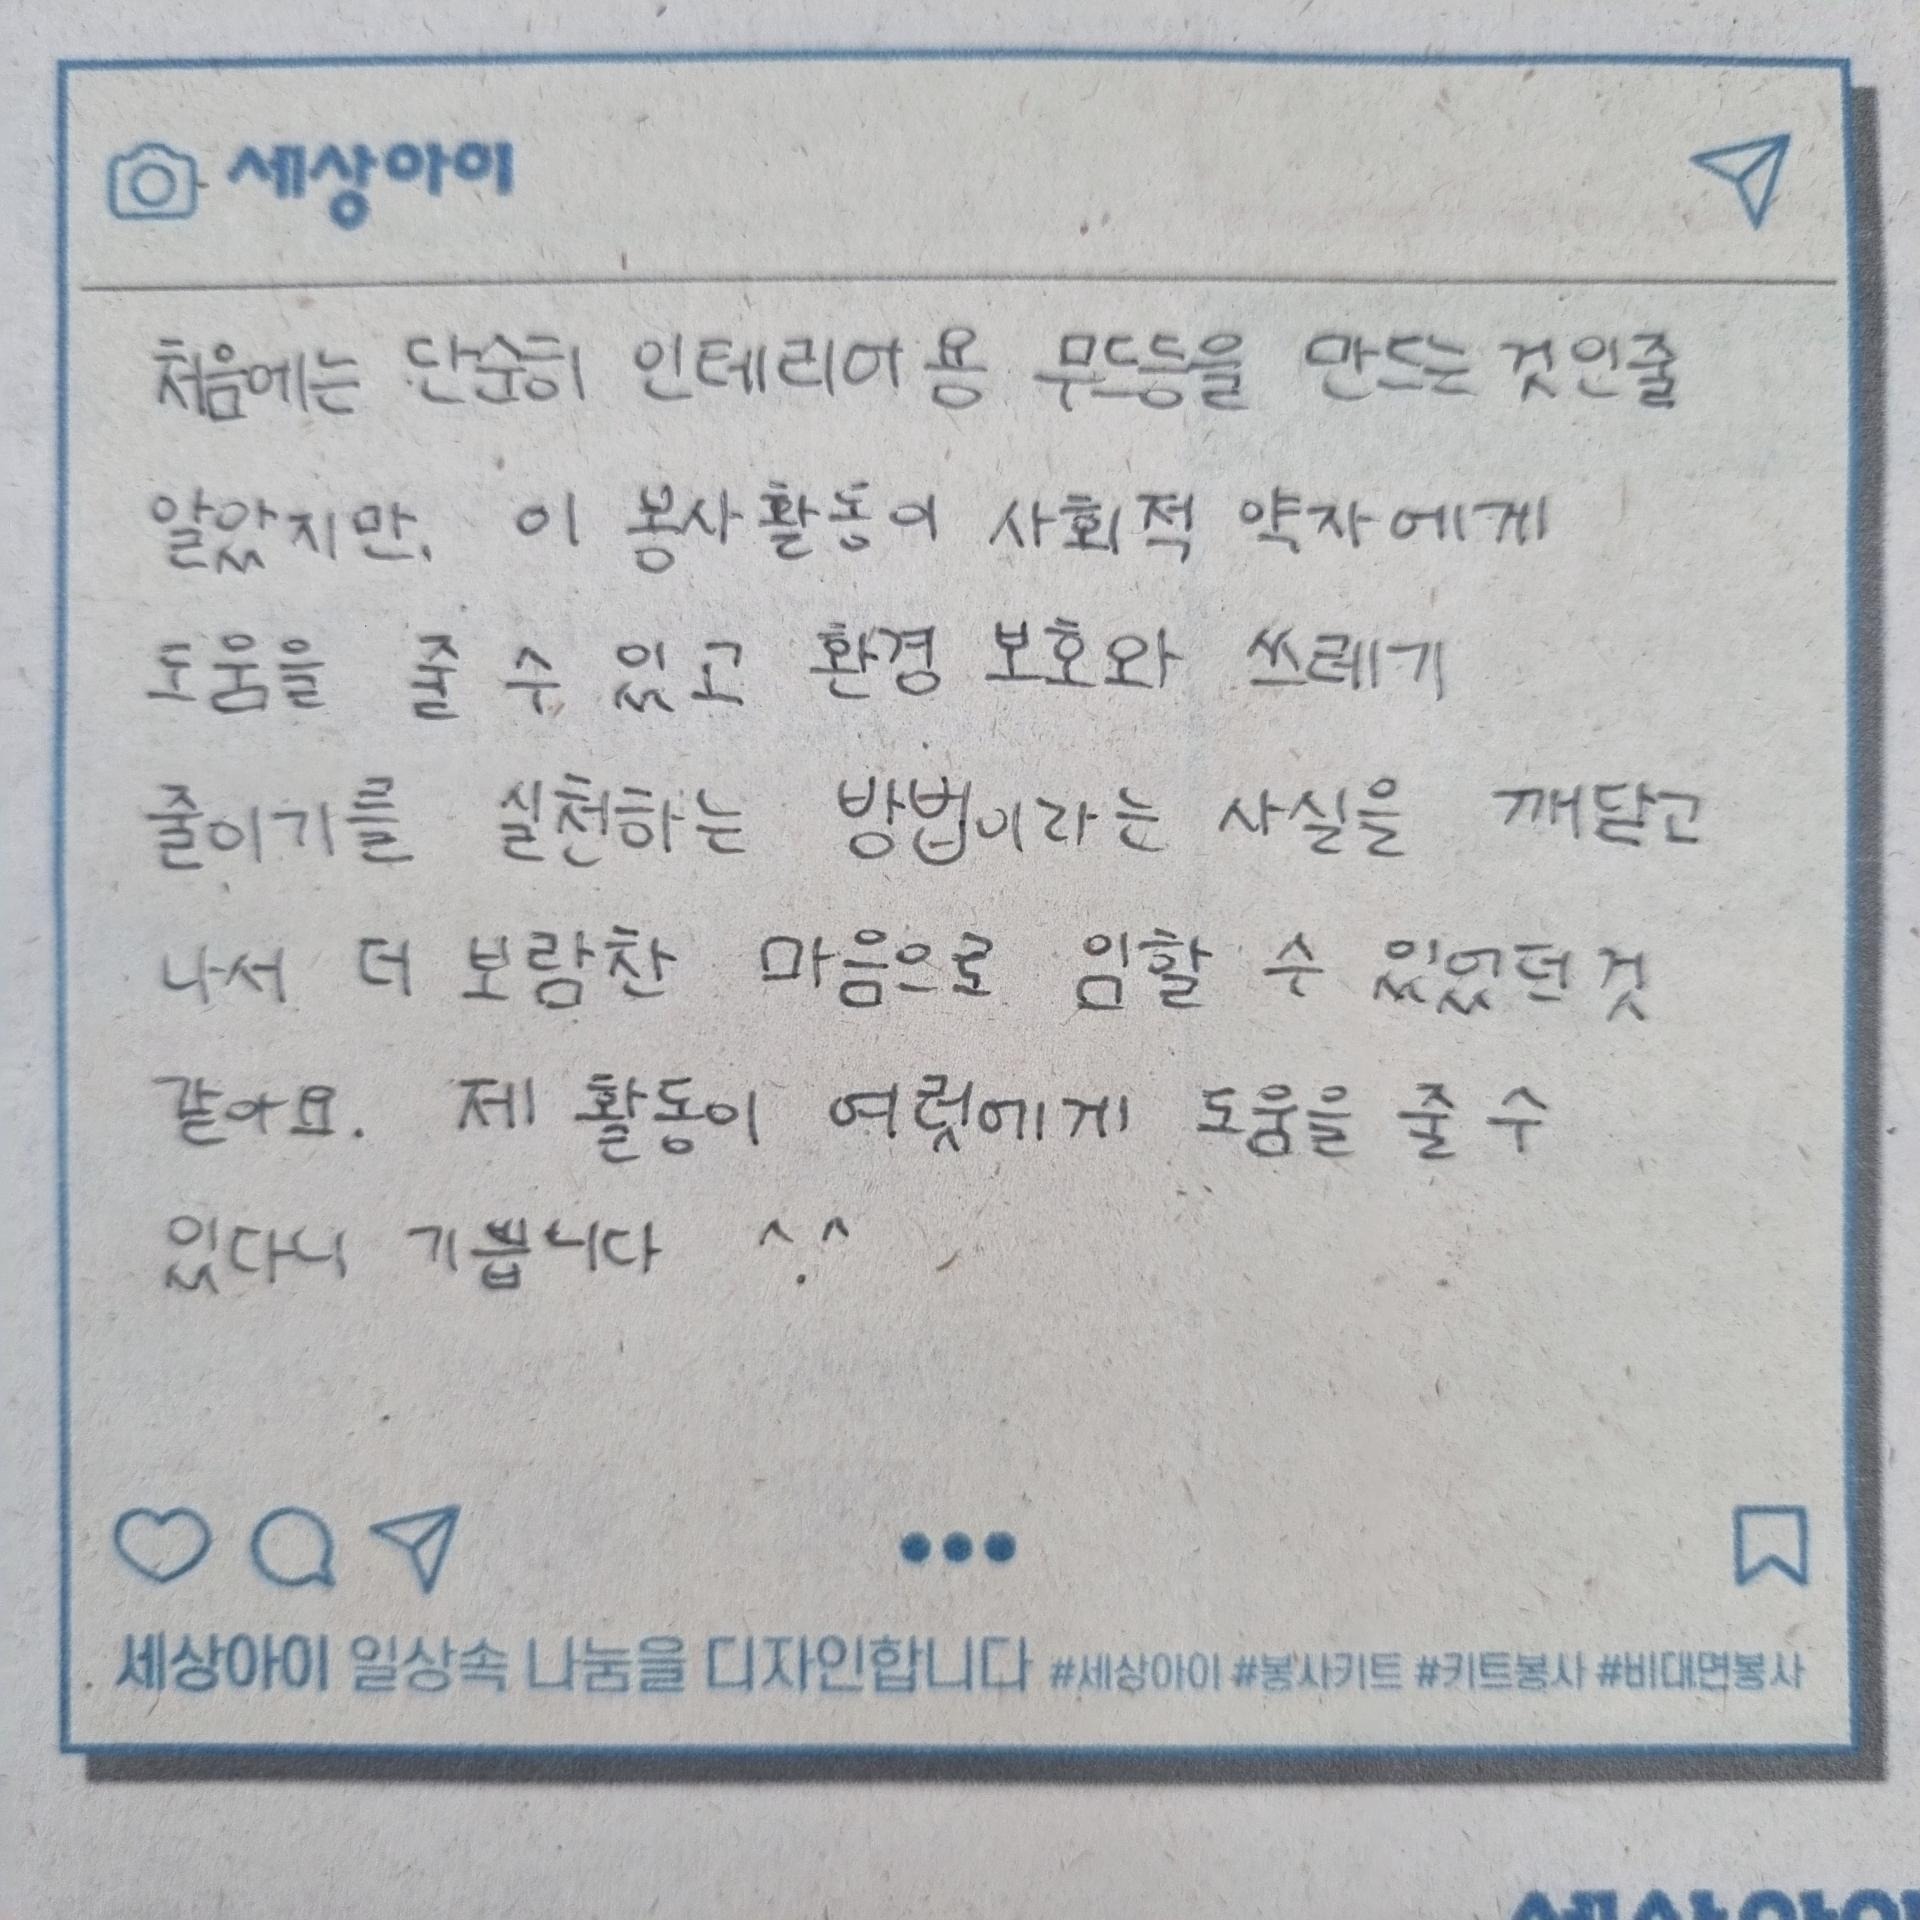 세상아이
처음에는 단순히 인테리어용 무드등을 만드는 것인줄
알았지만, 이 봉사활동이 사회적 약자에게
도움을 줄 수 있고 환경 보호와 쓰레기
줄이기를 실천하는 방법이라는 사실을 깨닫고
나서 더 보람찬 마음으로 임할 수 있었던 것
같아요. 제 활동이 여럿에게 도움을 줄 수
있다니 기쁩니다 ^.^
세상아이 일상속 나눔을 디자인합니다 #세상아이 #봉사키트 #키트봉사 #비대면봉사
세상아이